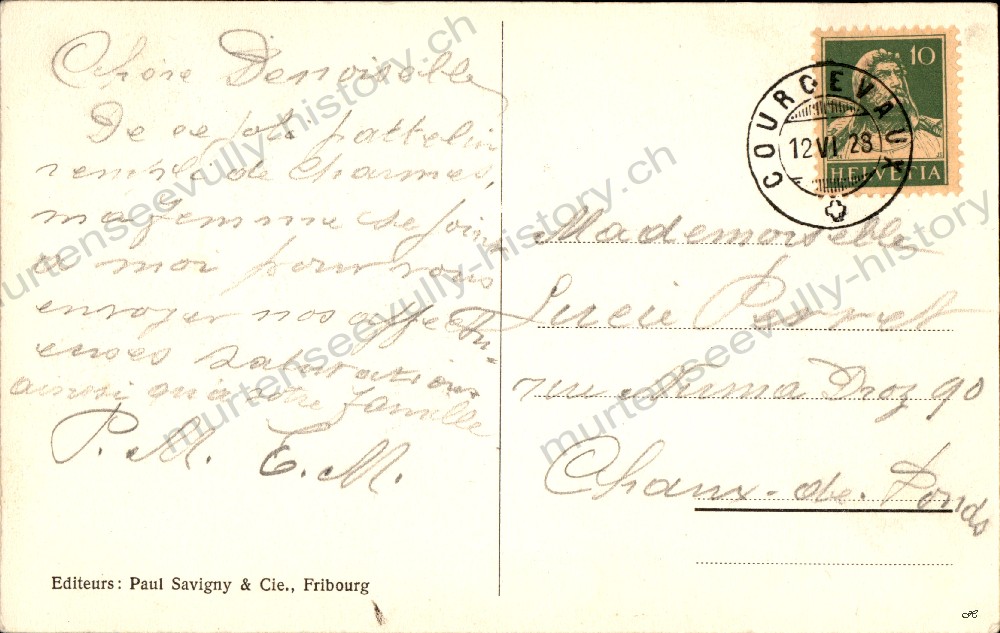 Chère Demoiselle
De ce joli pattelin
rempli de Charmes,
ma femme se joint
à moi pour vous
envoyer nos affectu-
euses salutations
ainsi qu'à votre famille
P. M. E. M.
Editeurs: Paul Savigny & Cie., Fribourg
10
HELVETIA
COURGEVAUX
12 VI 28
Mademoiselle
Lucie
rue Numa Droz 90
Chaux-de-Fonds
murtenseevully-history.ch
murtenseevully-history.ch
murtenseevully-history.ch
murtenseevully-history